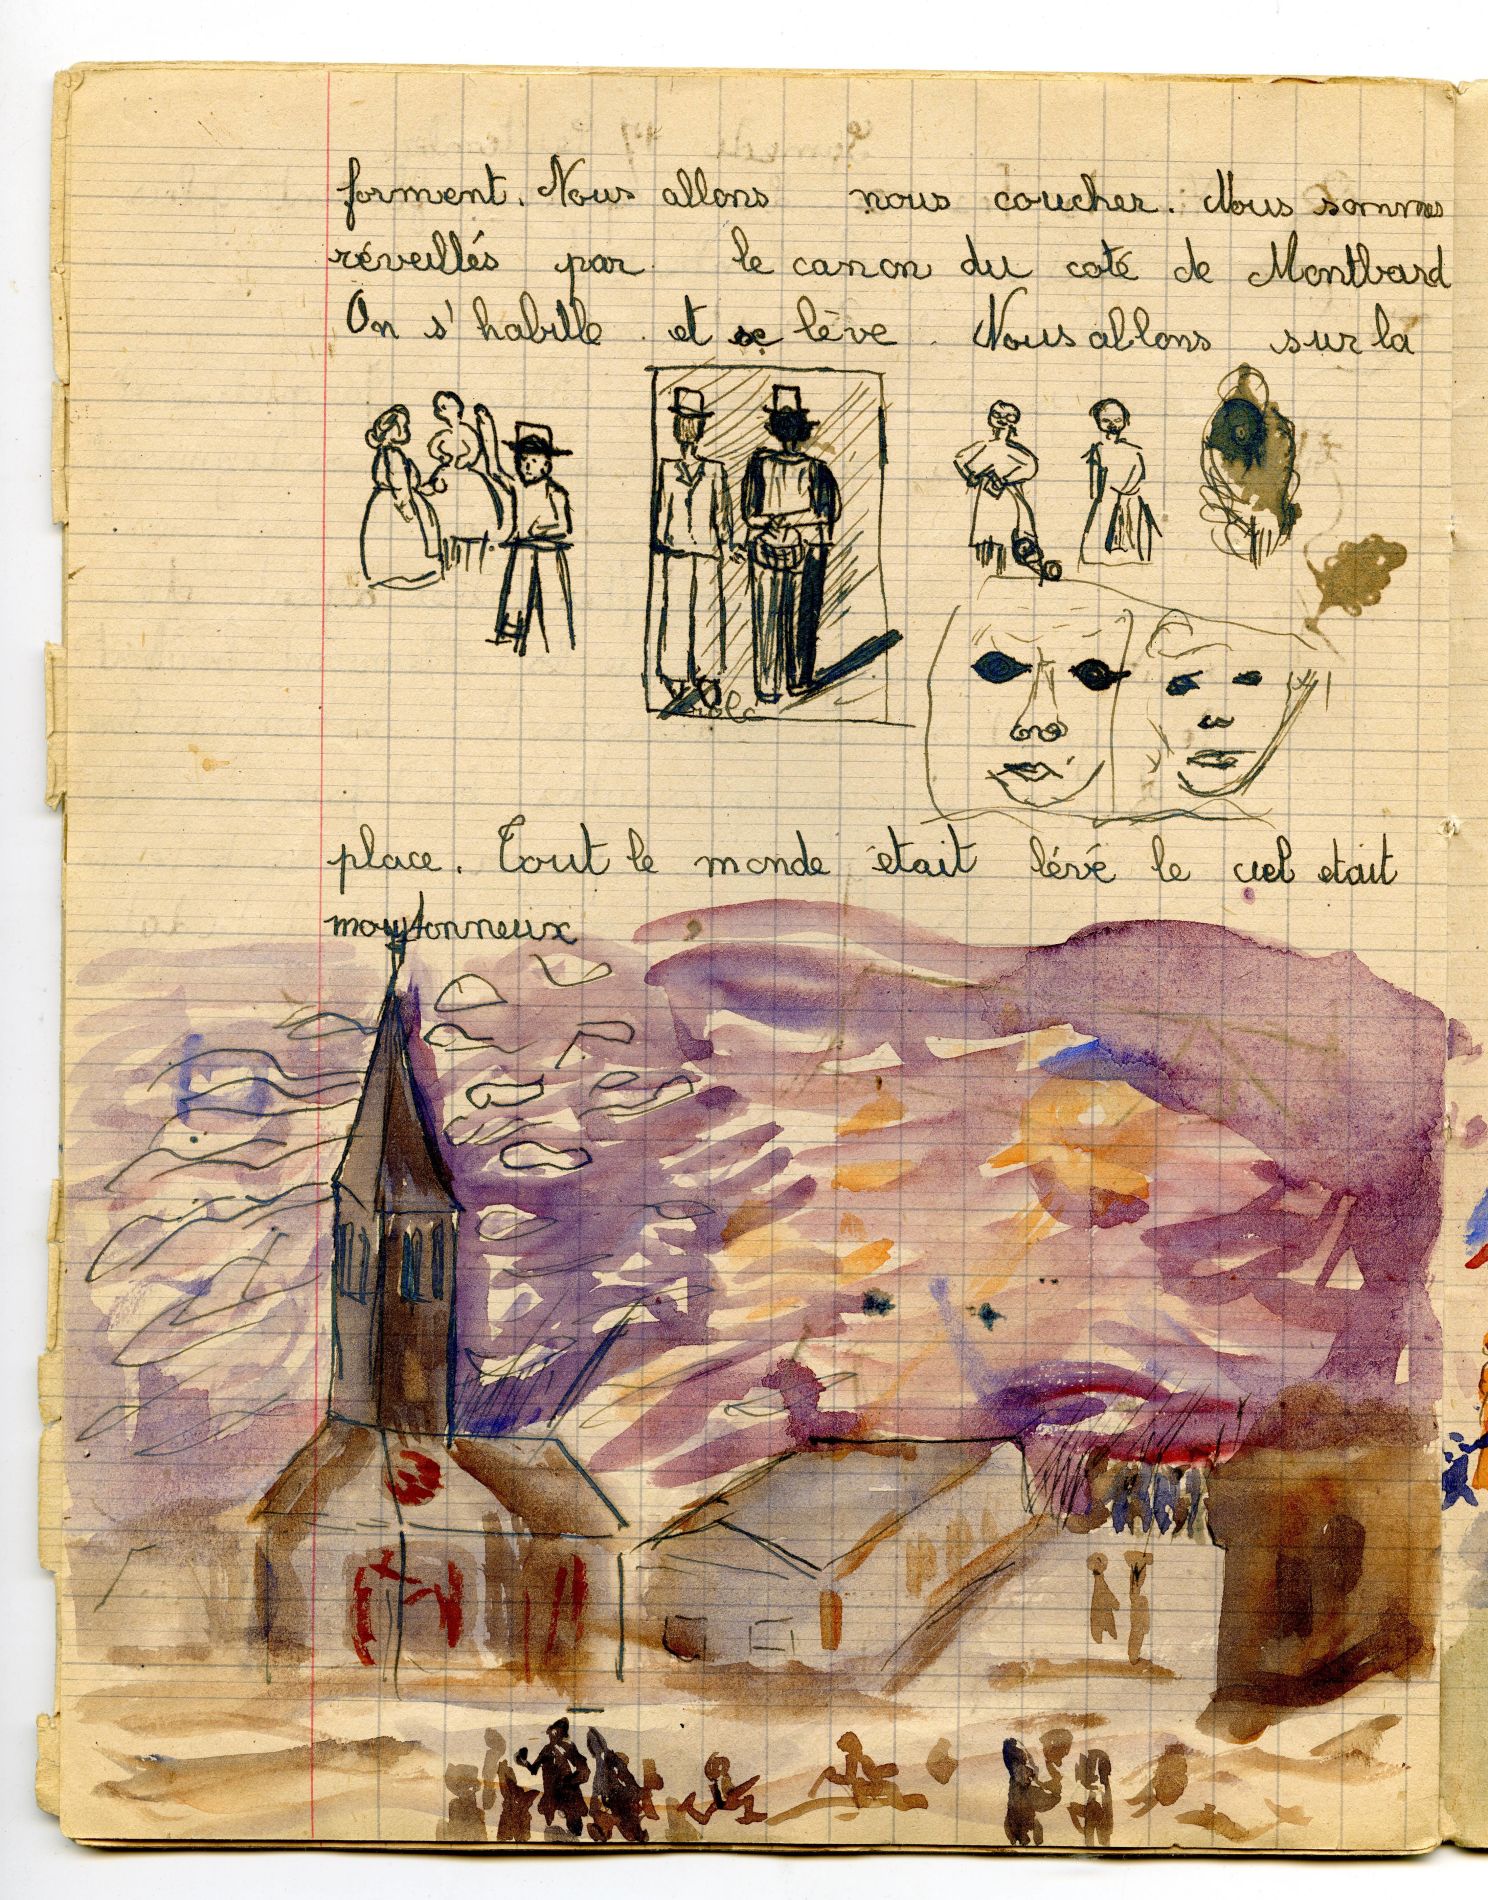 forment. Nous allons nous coucher. Nous sommes
réveillés par le canon du coté de Montbard
On s'habille et se lève. Nous allons sur la
place. Tout le monde était lévé le ciel etait
moutonneux